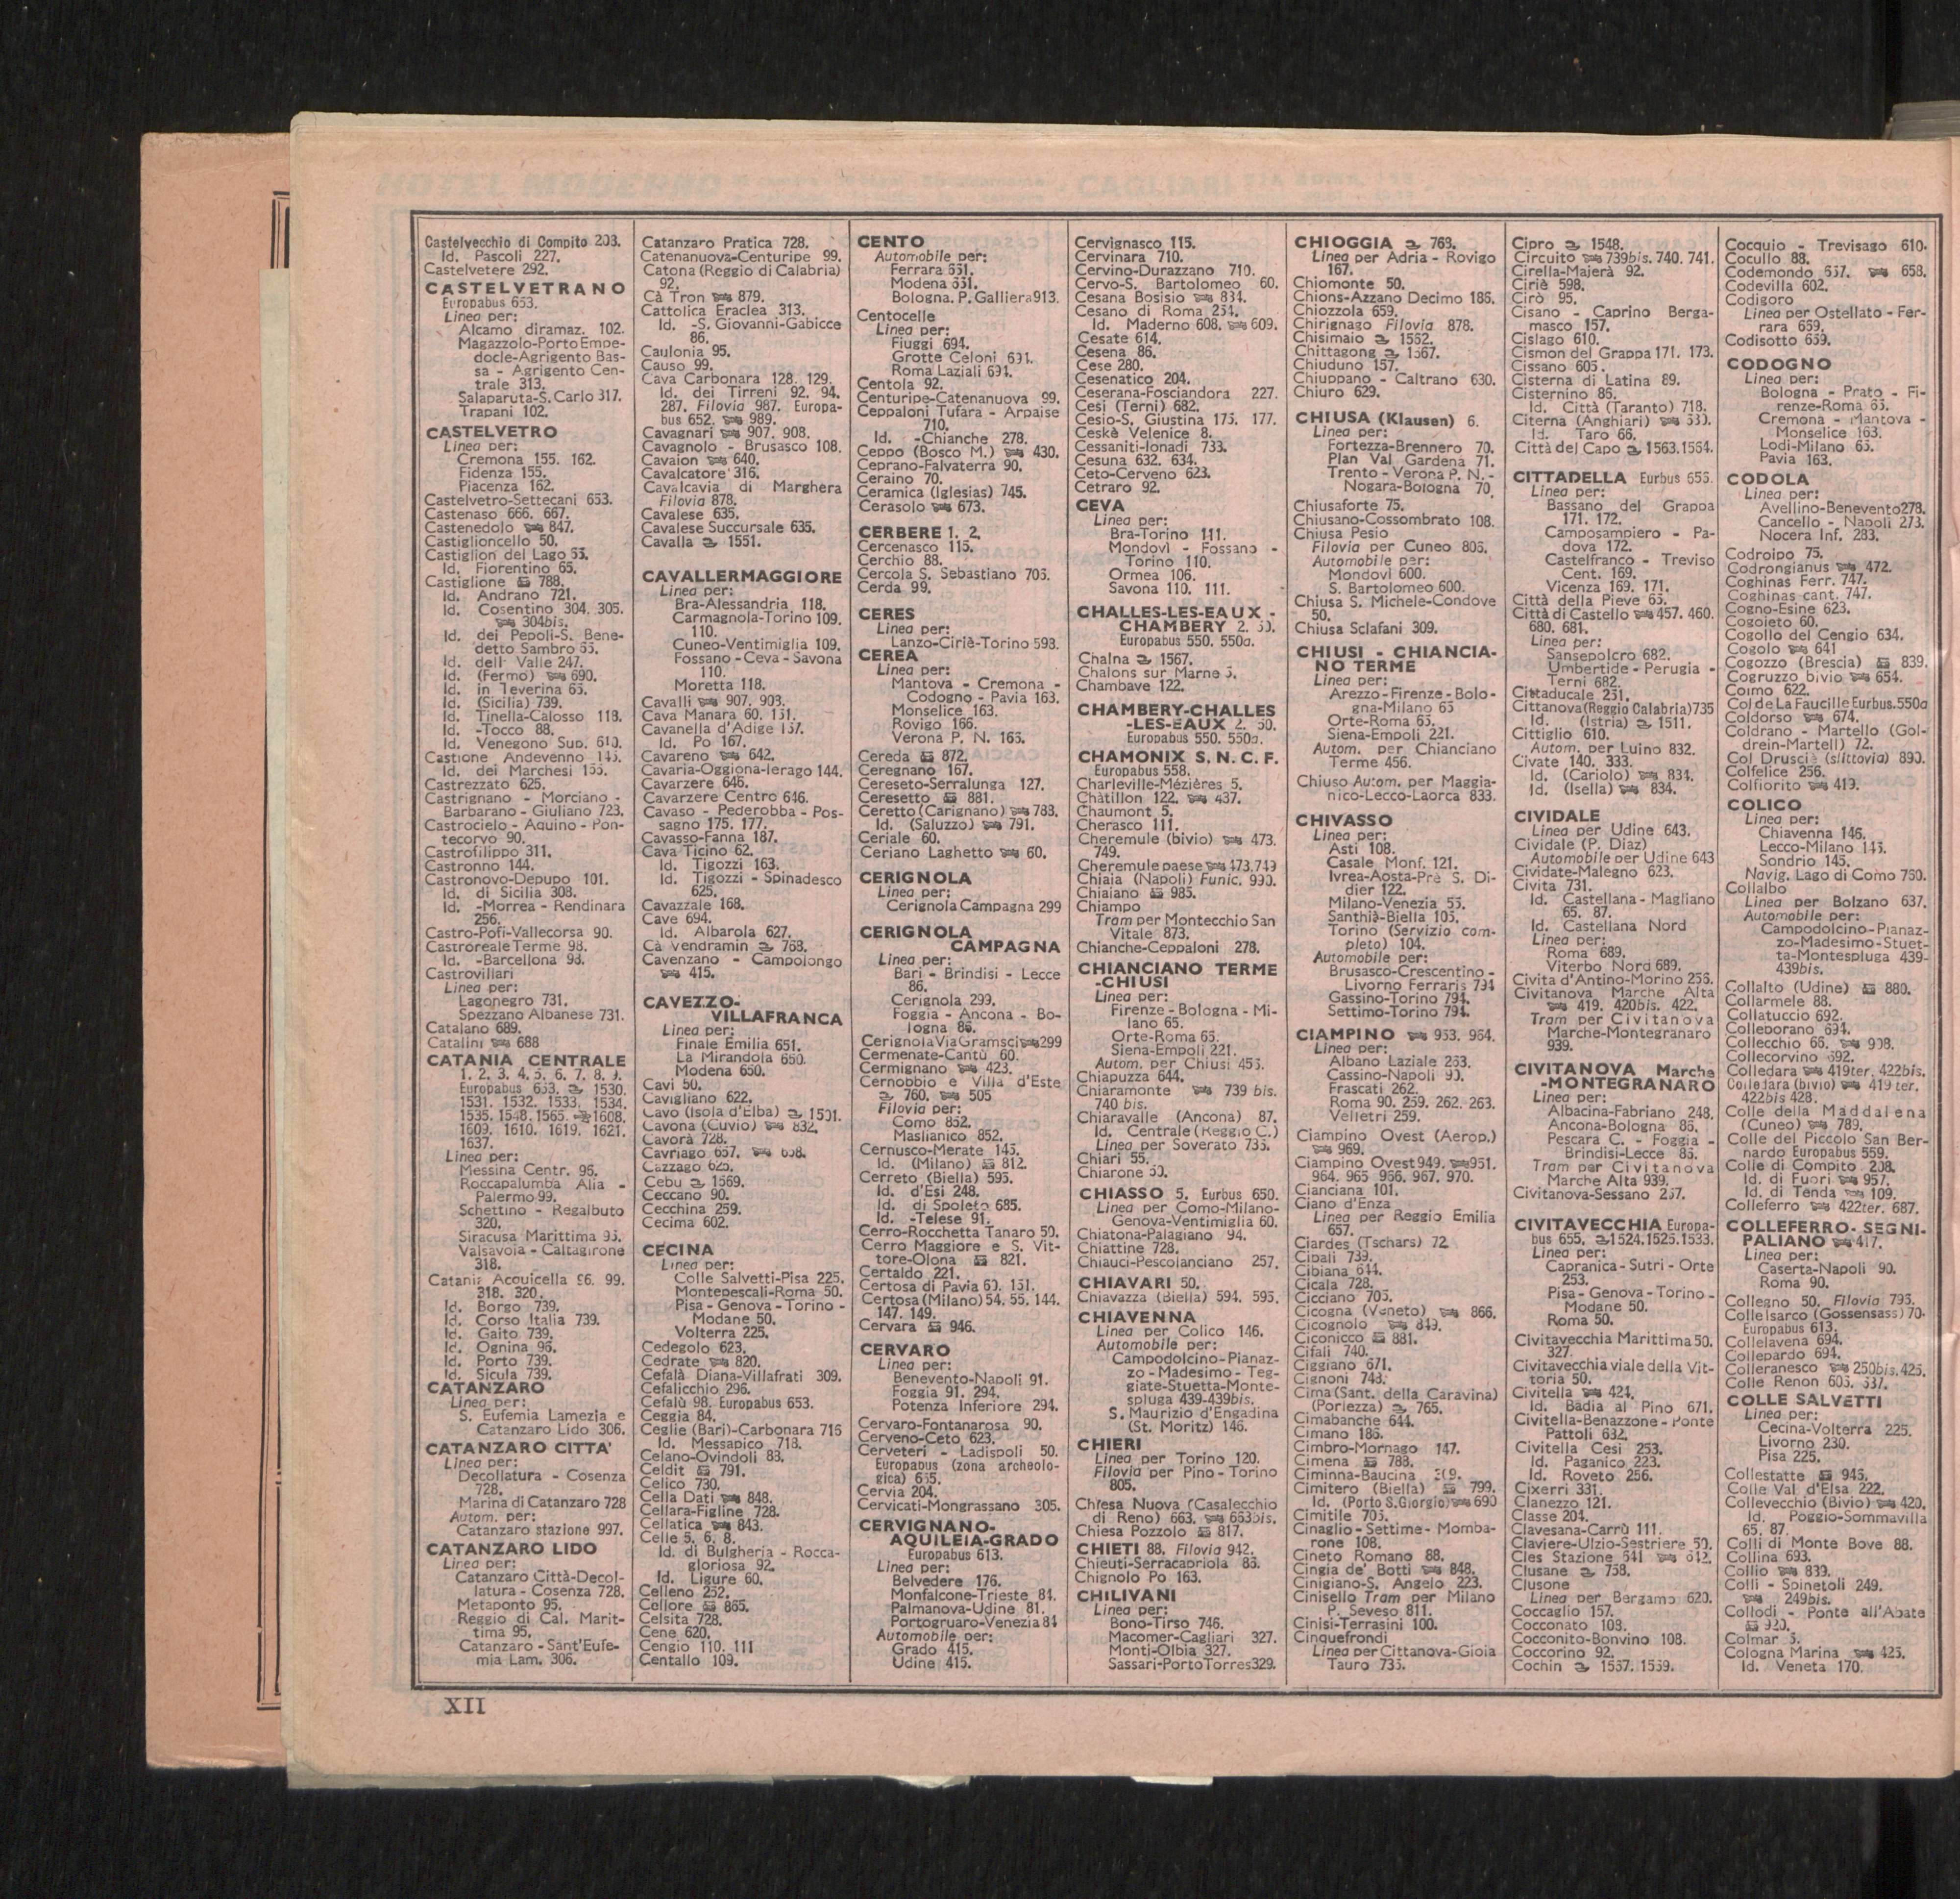 Castelvecchio di Compito 203.
Id. Pascoli 227.
Castelvetere 292.
CASTELVETRANO
Europabus 653.
Linea per:
Alcamo diramaz. 102.
Magazzolo-Porto Empe-
docle-Agrigento Bas-
sa - Agrigento Cen-
trale 313.
Salaparuta-S. Carlo 317.
Trapani 102.
CASTELVETRO
Linea per:
Cremona 155. 162.
Fidenza 155.
Piacenza 162.
Castelvetro-Settecani 653.
Castenaso 666. 667.
Castenedolo 847.
Castiglioncello 50.
Castiglion del Lago 65.
Id. Fiorentino 65.
Castiglione 788.
Id. Andrano 721.
Id. Cosentino 304. 305.
304bis.
Id. dei Pepoli-S. Bene-
detto Sambro 65.
Id. dell' Valle 247.
Id. (Fermo) 690.
Id. in Teverina 65.
Id. (Sicilia) 739.
Id. Tinella-Calosso 118.
Id. -Tocco 88.
Id. Venegono Sup. 610.
Castione Andevenno 145.
Id. dei Marchesi 155.
Castrezzato 625.
Castrignano - Morciano -
Barbarano - Giuliano 723.
Castrocielo - Aquino - Pon-
tecorvo 90.
Castrofilippo 311.
Castronno 144.
Castronovo-Depupo 101.
Id. di Sicilia 308.
Id. -Morrea - Rendinara
256.
Castro-Pofi-Vallecorsa 90.
Castroreale Terme 98.
Id. -Barcellona 98.
Castrovillari
Linea per:
Lagonegro 731.
Spezzano Albanese 731.
Catalano 689.
Catalini 688
CATANIA CENTRALE
1. 2. 3. 4. 5. 6. 7. 8. 9.
Europabus 653. 1530.
1531. 1532. 1533. 1534.
1535. 1548. 1565. 1608.
1609. 1610. 1619. 1621.
1637.
Linea per:
Messina Centr. 96.
Roccapalumba Alia -
Palermo 99.
Schettino - Regalbuto
320.
Siracusa Marittima 96.
Valsavoia - Caltagirone
318.
Catania Acquicella 96. 99.
318. 320.
Id. Borgo 739.
Id. Corso Italia 739.
Id. Gaito 739.
Id. Ognina 96.
Id. Porto 739.
Id. Sicula 739.
CATANZARO
Linea per:
S. Eufemia Lamezia e
Catanzaro Lido 306.
CATANZARO CITTA'
Linea per:
Decollatura - Cosenza
728.
Marina di Catanzaro 728
Autom. per:
Catanzaro stazione 997.
CATANZARO LIDO
Linea per:
Catanzaro Città-Decol-
latura - Cosenza 728.
Metaponto 95.
Reggio di Cal. Marit-
tima 95.
Catanzaro - Sant'Eufe-
mia Lam. 306.
Catanzaro Pratica 728.
Catenanuova-Centuripe 99.
Catona (Reggio di Calabria)
92.
Cà Tron 879.
Cattolica Eraclea 313.
Id. -S. Giovanni-Gabicce
86.
Caulonia 95.
Causo 99.
Cava Carbonara 128. 129.
Id. dei Tirreni 92. 94.
287. Filovia 987. Europa-
bus 652. 989.
Cavagnari 907. 908.
Cavagnolo - Brusasco 108.
Cavaion 640.
Cavalcatore 316.
Cavalcavia di Marghera
Filovia 878.
Cavalese 635.
Cavalese Succursale 635.
Cavalla 1551.
CAVALLERMAGGIORE
Linea per:
Bra-Alessandria 118.
Carmagnola-Torino 109.
110.
Cuneo-Ventimiglia 109.
Fossano - Ceva - Savona
110.
Moretta 118.
Cavalli 907. 908.
Cava Manara 60. 151.
Cavanella d'Adige 167.
Id. Po 167.
Cavareno 642.
Cavaria-Oggiona-Ierago 144.
Cavarzere 646.
Cavarzere Centro 646.
Cavaso - Pederobba - Pos-
sagno 175. 177.
Cavasso-Fanna 187.
Cava Ticino 62.
Id. Tigozzi 163.
Id. Tigozzi - Spinadesco
625.
Cavazzale 168.
Cave 694.
Id. Albarola 627.
Cà Vendramin 768.
Cavenzano - Campolongo
415.
CAVEZZO-
VILLAFRANCA
Linea per:
Finale Emilia 651.
La Mirandola 650.
Modena 650.
Cavi 50.
Cavigliano 622.
Cavo (Isola d'Elba) 1501.
Cavona (Cuvio) 832.
Cavorà 728.
Cavriago 657. 658.
Cazzago 625.
Cebu 1569.
Ceccano 90.
Cecchina 259.
Cecima 602.
CECINA
Linea per:
Colle Salvetti-Pisa 225.
Montepescali-Roma 50.
Pisa - Genova - Torino -
Modane 50.
Volterra 225.
Cedegolo 623.
Cedrate 820.
Cefalà Diana-Villafrati 309.
Cefalicchio 296.
Cefalù 98. Europabus 653.
Ceggia 84.
Ceglie (Bari)-Carbonara 716
Id. Messapico 718.
Celano-Ovindoli 88.
Celdit 791.
Celico 730.
Cella Dati 848.
Cellara-Figline 728.
Cellatica 843.
Celle 5. 6. 8.
Id. di Bulgheria - Rocca-
gloriosa 92.
Id. Ligure 60.
Celleno 252.
Cellore 865.
Celsita 728.
Cene 620.
Cengio 110. 111
Centallo 109.
CENTO
Automobile per:
Ferrara 651.
Modena 651.
Bologna. P. Galliera 913.
Centocelle
Linea per:
Fiuggi 694.
Grotte Celoni 691.
Roma Laziali 694.
Centola 92.
Centuripe-Catenanuova 99.
Ceppaloni Tufara - Arpaise
710.
Id. -Chianche 278.
Ceppo (Bosco M.) 430.
Ceprano-Falvaterra 90.
Ceraino 70.
Ceramica (Iglesias) 745.
Cerasolo 673.
CERBERE 1. 2.
Cercenasco 115.
Cerchio 88.
Cercola S. Sebastiano 705.
Cerda 99.
CERES
Linea per:
Lanzo-Ciriè-Torino 598.
CEREA
Linea per:
Mantova - Cremona -
Codogno - Pavia 163.
Monselice 163.
Rovigo 166.
Verona P. N. 166.
Cereda 872.
Ceregnano 167.
Cereseto-Serralunga 127.
Ceresetto 881.
Ceretto (Carignano) 788.
Id. (Saluzzo) 791.
Ceriale 60.
Ceriano Laghetto 60.
CERIGNOLA
Linea per:
Cerignola Campagna 299
CERIGNOLA
CAMPAGNA
Linea per:
Bari - Brindisi - Lecce
86.
Cerignola 299.
Foggia - Ancona - Bo-
logna 86.
Cerignola Via Gramsci 299
Cermenate-Cantù 60.
Cermignano 423.
Cernobbio e Villa d'Este
760. 505
Filovia per:
Como 852.
Maslianico 852.
Cernusco-Merate 145.
Id. (Milano) 812.
Cerreto (Biella) 595.
Id. d'Esi 248.
Id. di Spoleto 685.
Id. -Telese 91.
Cerro-Rocchetta Tanaro 59.
Cerro Maggiore e S. Vit-
tore-Olona 821.
Certaldo 221.
Certosa di Pavia 60. 151.
Certosa (Milano) 54. 55. 144.
147. 149.
Cervara 946.
CERVARO
Linea per:
Benevento-Napoli 91.
Foggia 91. 294.
Potenza Inferiore 294.
Cervaro-Fontanarosa 90.
Cerveno-Ceto 623.
Cerveteri - Ladispoli 50.
Europabus (zona archeolo-
gica) 655.
Cervia 204.
Cervicati-Mongrassano 305.
CERVIGNANO-
AQUILEIA-GRADO
Europabus 613.
Linea per:
Belvedere 176.
Monfalcone-Trieste 84.
Palmanova-Udine 81.
Portogruaro-Venezia 84
Automobile per:
Grado 415.
Udine 415.
Cervignasco 115.
Cervinara 710.
Cervino-Durazzano 710.
Cervo-S. Bartolomeo 60.
Cesana Bosisio 834.
Cesano di Roma 254.
Id. Maderno 608. 609.
Cesate 614.
Cesena 86.
Cese 280.
Cesenatico 204.
Ceserana-Fosciandora 227.
Cesi (Terni) 682.
Cesio-S. Giustina 175. 177.
Ceskè Velenice 8.
Cessaniti-Ionadi 733.
Cesuna 632. 634.
Ceto-Cerveno 623.
Cetraro 92.
CEVA
Linea per:
Bra-Torino 111.
Mondovì - Fossano -
Torino 110.
Ormea 106.
Savona 110. 111.
CHALLES-LES-EAUX -
CHAMBERY 2. 50.
Europabus 550. 550a.
Chalna 1567.
Chalons sur Marne 5.
Chambave 122.
CHAMBERY-CHALLES
-LES-EAUX 2. 50.
Europabus 550. 550a.
CHAMONIX S. N. C. F.
Europabus 558.
Charleville-Mézières 5.
Châtillon 122. 437.
Chaumont 5.
Cherasco 111.
Cheremule (bivio) 473.
749.
Cheremule paese 473.749
Chiaia (Napoli) Funic. 990.
Chiaiano 985.
Chiampo
Tram per Montecchio San
Vitale 873.
Chianche-Ceppaloni 278.
CHIANCIANO TERME
-CHIUSI
Linea per:
Firenze - Bologna - Mi-
lano 65.
Orte-Roma 65.
Siena-Empoli 221.
Autom. per Chiusi 456.
Chiapuzza 644.
Chiaramonte 739 bis.
740 bis.
Chiaravalle (Ancona) 87.
Id. Centrale (Reggio C.)
Linea per Soverato 735.
Chiari 55.
Chiarone 50.
CHIASSO 5. Eurbus 650.
Linea per Como-Milano-
Genova-Ventimiglia 60.
Chiatona-Palagiano 94.
Chiattine 728.
Chiauci-Pescolanciano 257.
CHIAVARI 50.
Chiavazza (Biella) 594. 595.
CHIAVENNA
Linea per Colico 146.
Automobile per:
Campodolcino-Pianaz-
zo - Madesimo - Teg-
giate-Stuetta-Monte-
spluga 439-439bis.
S. Maurizio d'Engadina
(St. Moritz) 146.
CHIERI
Linea per Torino 120.
Filovia per Pino - Torino
805.
Chiesa Nuova (Casalecchio
di Reno) 663. 663bis.
Chiesa Pozzolo 817.
CHIETI 88. Filovia 942.
Chieuti-Serracapriola 86.
Chignolo Po 163.
CHILIVANI
Linea per:
Bono-Tirso 746.
Macomer-Cagliari 327.
Monti-Olbia 327.
Sassari-Porto Torres 329.
CHIOGGIA 763.
Linea per Adria - Rovigo
167.
Chiomonte 50.
Chions-Azzano Decimo 186.
Chiozzola 659.
Chirignago Filovia 878.
Chisimaio 1552.
Chittagong 1567.
Chiuduno 157.
Chiuppano - Caltrano 630.
Chiuro 629.
CHIUSA (Klausen) 6.
Linea per:
Fortezza-Brennero 70.
Plan Val Gardena 71.
Trento - Verona P. N. -
Nogara-Bologna 70.
Chiusaforte 75.
Chiusano-Cossombrato 108.
Chiusa Pesio
Filovia per Cuneo 806.
Automobile per:
Mondovì 600.
S. Bartolomeo 600.
Chiusa S. Michele-Condove
50.
Chiusa Sclafani 309.
CHIUSI - CHIANCIA-
NO TERME
Linea per:
Arezzo - Firenze - Bolo-
gna-Milano 65
Orte-Roma 65.
Siena-Empoli 221.
Autom. per Chianciano
Terme 456.
Chiuso Autom. per Maggia-
nico-Lecco-Laorca 833.
CHIVASSO
Linea per:
Asti 108.
Casale Monf. 121.
Ivrea-Aosta-Prè S. Di-
dier 122.
Milano-Venezia 55.
Santhià-Biella 105.
Torino (Servizio com-
pleto) 104.
Automobile per:
Brusasco-Crescentino -
Livorno Ferraris 794
Gassino-Torino 794.
Settimo-Torino 794.
CIAMPINO 953. 964.
Linea per:
Albano Laziale 263.
Cassino-Napoli 90.
Frascati 262.
Roma 90. 259. 262. 263.
Velletri 259.
Ciampino Ovest (Aerop.)
969.
Ciampino Ovest 949. 951.
964. 965 966. 967. 970.
Cianciana 101.
Ciano d'Enza
Linea per Reggio Emilia
657.
Ciardes (Tschars) 72
Cibali 739.
Cibiana 644.
Cicala 728.
Cicciano 705.
Cicogna (Veneto) 866.
Cicognolo 849.
Ciconicco 881.
Cifali 740.
Ciggiano 671.
Cignoni 748.
Cima (Sant. della Caravina)
(Porlezza) 765.
Cimabanche 644.
Cimano 186.
Cimbro-Mornago 147.
Cimena 788.
Ciminna-Baucina 309.
Cimitero (Biella) 799.
Id. (Porto S. Giorgio) 690
Cimitile 705.
Cinaglio - Settime - Momba-
rone 108.
Cineto Romano 88.
Cingia de' Botti 848.
Cinigiano-S. Angelo 223.
Cinisello Tram per Milano
P. Seveso 811.
Cinisi-Terrasini 100.
Cinquefrondi
Linea per Cittanova-Gioia
Tauro 735.
Cipro 1548.
Circuito 739bis. 740. 741.
Cirella-Majerà 92.
Ciriè 598.
Cirò 95.
Cisano - Caprino Berga-
masco 157.
Cislago 610.
Cismon del Grappa 171. 173.
Cissano 605.
Cisterna di Latina 89.
Cisternino 86.
Id. Città (Taranto) 718.
Citerna (Anghiari)
Id. Taro 66.
Città del Capo 1563.1564.
CITTADELLA Eurbus 656.
Linea per:
Bassano del Grappa
171. 172.
Camposampiero - Pa-
dova 172.
Castelfranco - Treviso
Cent. 169.
Vicenza 169. 171.
Città della Pieve 65.
Città di Castello 457. 460.
680. 681.
Linea per:
Sansepolcro 682.
Umbertide - Perugia -
Terni 682.
Cittaducale 251.
Cittanova (Reggio Calabria) 735
Id. (Istria) 1511.
Cittiglio 610.
Autom. per Luino 832.
Civate 140. 333.
Id. (Cariolo) 834.
Id. (Isella) 834.
CIVIDALE
Linea per Udine 643.
Cividale (P. Diaz)
Automobile per Udine 643
Cividate-Malegno 623.
Civita 731.
Id. Castellana - Magliano
65. 87.
Id. Castellana Nord
Linea per:
Roma 689.
Viterbo Nord 689.
Civita d'Antino-Morino 256.
Civitanova Marche Alta
419. 420bis. 422.
Tram per Civitanova
Marche-Montegranaro
939.
CIVITANOVA Marche
-MONTEGRANARO
Linea per:
Albacina-Fabriano 248.
Ancona-Bologna 86.
Pescara C. - Foggia -
Brindisi-Lecce 86.
Tram per Civitanova
Marche Alta 939.
Civitanova-Sessano 257.
CIVITAVECCHIA Europa-
bus 655. 1524.1525.1533.
Linea per:
Capranica - Sutri - Orte
253.
Pisa - Genova - Torino -
Modane 50.
Roma 50.
Civitavecchia Marittima 50.
327.
Civitavecchia viale della Vit-
toria 50.
Civitella 424.
Id. Badia al Pino 671.
Civitella-Benazzone - Ponte
Pattoli 632.
Civitella Cesi 253.
Id. Paganico 223.
Id. Roveto 256.
Cixerri 331.
Clanezzo 121.
Classe 204.
Clavesana-Carrù 111.
Claviere-Ulzio-Sestriere 50.
Cles Stazione 641 642.
Clusane 758.
Clusone
Linea per Bergamo 620.
Coccaglio 157.
Cocconato 108.
Cocconito-Bonvino 108.
Coccorino 92.
Cochin 1557. 1559.
Cocquio - Trevisago 610.
Cocullo 88.
Codemondo 657. 658.
Codevilla 602.
Codigoro
Linea per Ostellato - Fer-
rara 659.
Codisotto 659.
CODOGNO
Linea per:
Bologna - Prato - Fi-
renze-Roma 65.
Cremona - Mantova -
Monselice 163.
Lodi-Milano 65.
Pavia 163.
CODOLA
Linea per:
Avellino-Benevento 278.
Cancello - Napoli 273.
Nocera Inf. 283.
Codroipo 75.
Codrongianus 472.
Coghinas Ferr. 747.
Coghinas cant. 747.
Cogno-Esine 623.
Cogoleto 60.
Cogollo del Cengio 634.
Cogolo 641
Cogozzo (Brescia) 839.
Cogruzzo bivio 654.
Coimo 622.
Col de La Faucille Eurbus. 550a
Coldorso 674.
Coldrano - Martello (Gol-
drein-Martell) 72.
Col Druscià (slittovia) 890.
Colfelice 256.
Colfiorito 419.
COLICO
Linea per:
Chiavenna 146.
Lecco-Milano 145.
Sondrio 145.
Navig. Lago di Como 760.
Collalbo
Linea per Bolzano 637.
Automobile per:
Campodolcino-Pianaz-
zo-Madesimo-Stuet-
ta-Montespluga 439-
439bis.
Collalto (Udine) 880.
Collarmele 88.
Collatuccio 692.
Colleborano 694.
Collecchio 66. 908.
Collecorvino 692.
Colledara 419ter. 422bis.
Colledara (bivio) 419 ter.
422bis 428.
Colle della Maddalena
(Cuneo) 789.
Colle del Piccolo San Ber-
nardo Europabus 559.
Colle di Compito 208.
Id. di Fuori 957.
Id. di Tenda 109.
Colleferro 422ter. 687.
COLLEFERRO - SEGNI-
PALIANO 417.
Linea per:
Caserta-Napoli 90.
Roma 90.
Collegno 50. Filovia 795.
Colle Isarco (Gossensass) 70.
Europabus 613.
Collelavena 694.
Collepardo 694.
Colleranesco 250bis. 425.
Colle Renon 605. 637.
COLLE SALVETTI
Linea per:
Cecina-Volterra 225.
Livorno 230.
Pisa 225.
Collestatte 945.
Colle Val d'Elsa 222.
Collevecchio (Bivio) 420.
Id. Poggio-Sommavilla
65. 87.
Colli di Monte Bove 88.
Collina 693.
Collio 839.
Colli - Spinetoli 249.
249bis.
Collodi - Ponte all'Abate
920.
Colmar 5.
Cologna Marina 425.
Id. Veneta 170.
XII